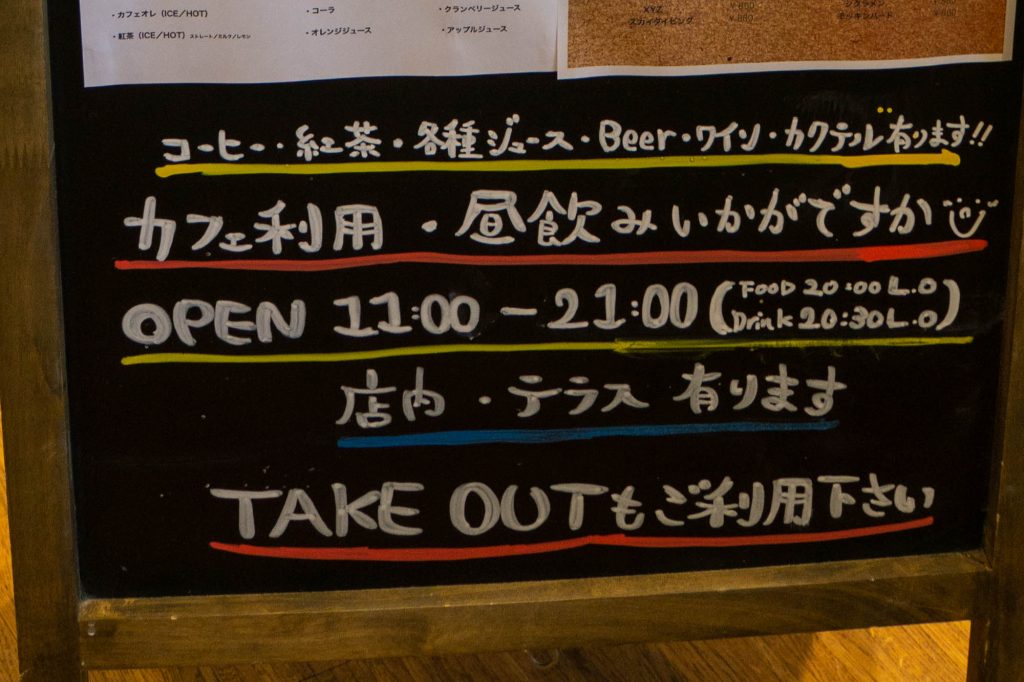 ・カフェオレ（ICE／HOT） ・コーラ ・クランベリージュース
・紅茶（ICE／HOT）ストレート／ミルク／レモン ・オレンジジュース ・アップルジュース
XYZ
スカイダイビング
コーヒー・紅茶・各種ジュース・Beer・ワイン・カクテル有ります!!
カフェ利用・昼飲みいかがですか
OPEN 11:00 － 21:00 (Food 20:00 L.O
Drink 20:30 L.O)
店内・テラス 有ります
TAKE OUTもご利用下さい